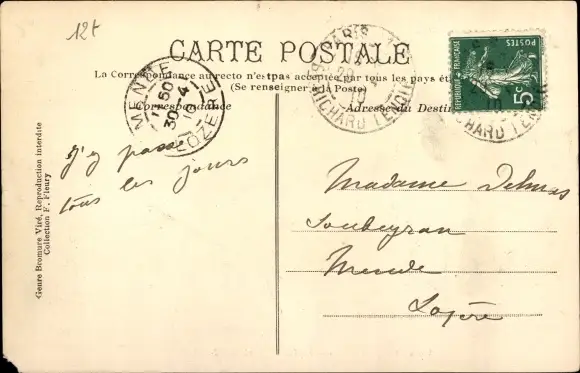 12t
CARTE POSTALE
La Correspondance au recto n'est pas acceptée par tous les pays
(Se renseigner à la Poste)
Correspondance
Adresse du Destin
MENDE
11 50
30 - 4
10
LOZERE
PARIS
10
RICHARD LENOIR
POSTES
REPUBLIQUE FRANÇAISE
5c
RICHARD LENOIR
J'y passe
tous les jours
Madame Delmas
Soubeyran
Mende
Lozère
Genre Bromure Viré, Reproduction interdite
Collection F. Fleury